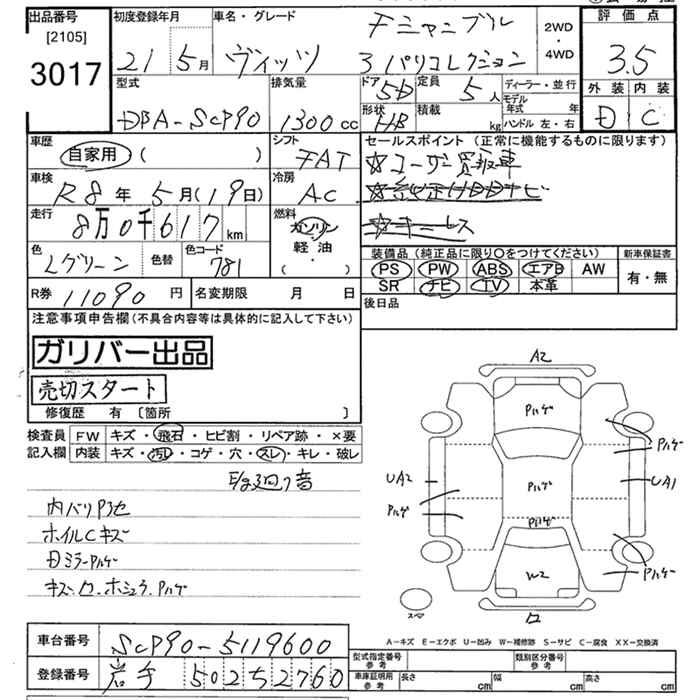 出品番号
[2105]
3017
初度登録年月
21 5月
車名・グレード
ヴィッツ
チャンブル
3 パリコレクション
2WD
・
4WD
評価点
3.5
外装 内装
D C
型式
DBA-SCP90
排気量
1300cc
ドア 5D
定員 5人
形状 HB
積載 kg
ディーラー・並行
モデル年式 年
ハンドル 左・右
車歴
自家用 ( )
シフト
FAT
セールスポイント (正常に機能するものに限ります)
☆ユーザー買取車
☆純正HDDナビ
☆キーレス
車検
R8年 5月(19日)
冷房
AC
走行
8万0千617km
燃料
ガソリン
軽油
( )
色
Lグリーン
色替
色コード
781
装備品 (純正品に限り○をつけてください)
新車保証書
PS PW ABS エアB AW
SR ナビ TV 本革
有・無
R券 11090円
名変期限 月 日
後日品
注意事項申告欄(不具合内容等は具体的に記入して下さい)
ガリバー出品
売切スタート
修復歴 有 〔箇所 〕
検査員
記入欄
FW キズ・飛石・ヒビ割・リペア跡・×要
内装 キズ・汚レ・コゲ・穴・スレ・キレ・破レ
内バリアセ
ホイルCキズ
Dミラーハゲ
キズ.ロ.ホシュウ.Pハゲ
A2
Pハゲ
Pハゲ
UA2
Pハゲ
UA1
Pハゲ
Pハゲ
W2
Pハゲ
スペア
ロ
A－キズ E－エクボ U－凹み W－補修跡 S－サビ C－腐食 XX－交換済
車台番号
SCP90-5119600
登録番号
岩手 502 5 2760
型式指定番号
参考
類別区分番号
参考
車庫証明用
参考
長さ cm
幅 cm
高さ cm